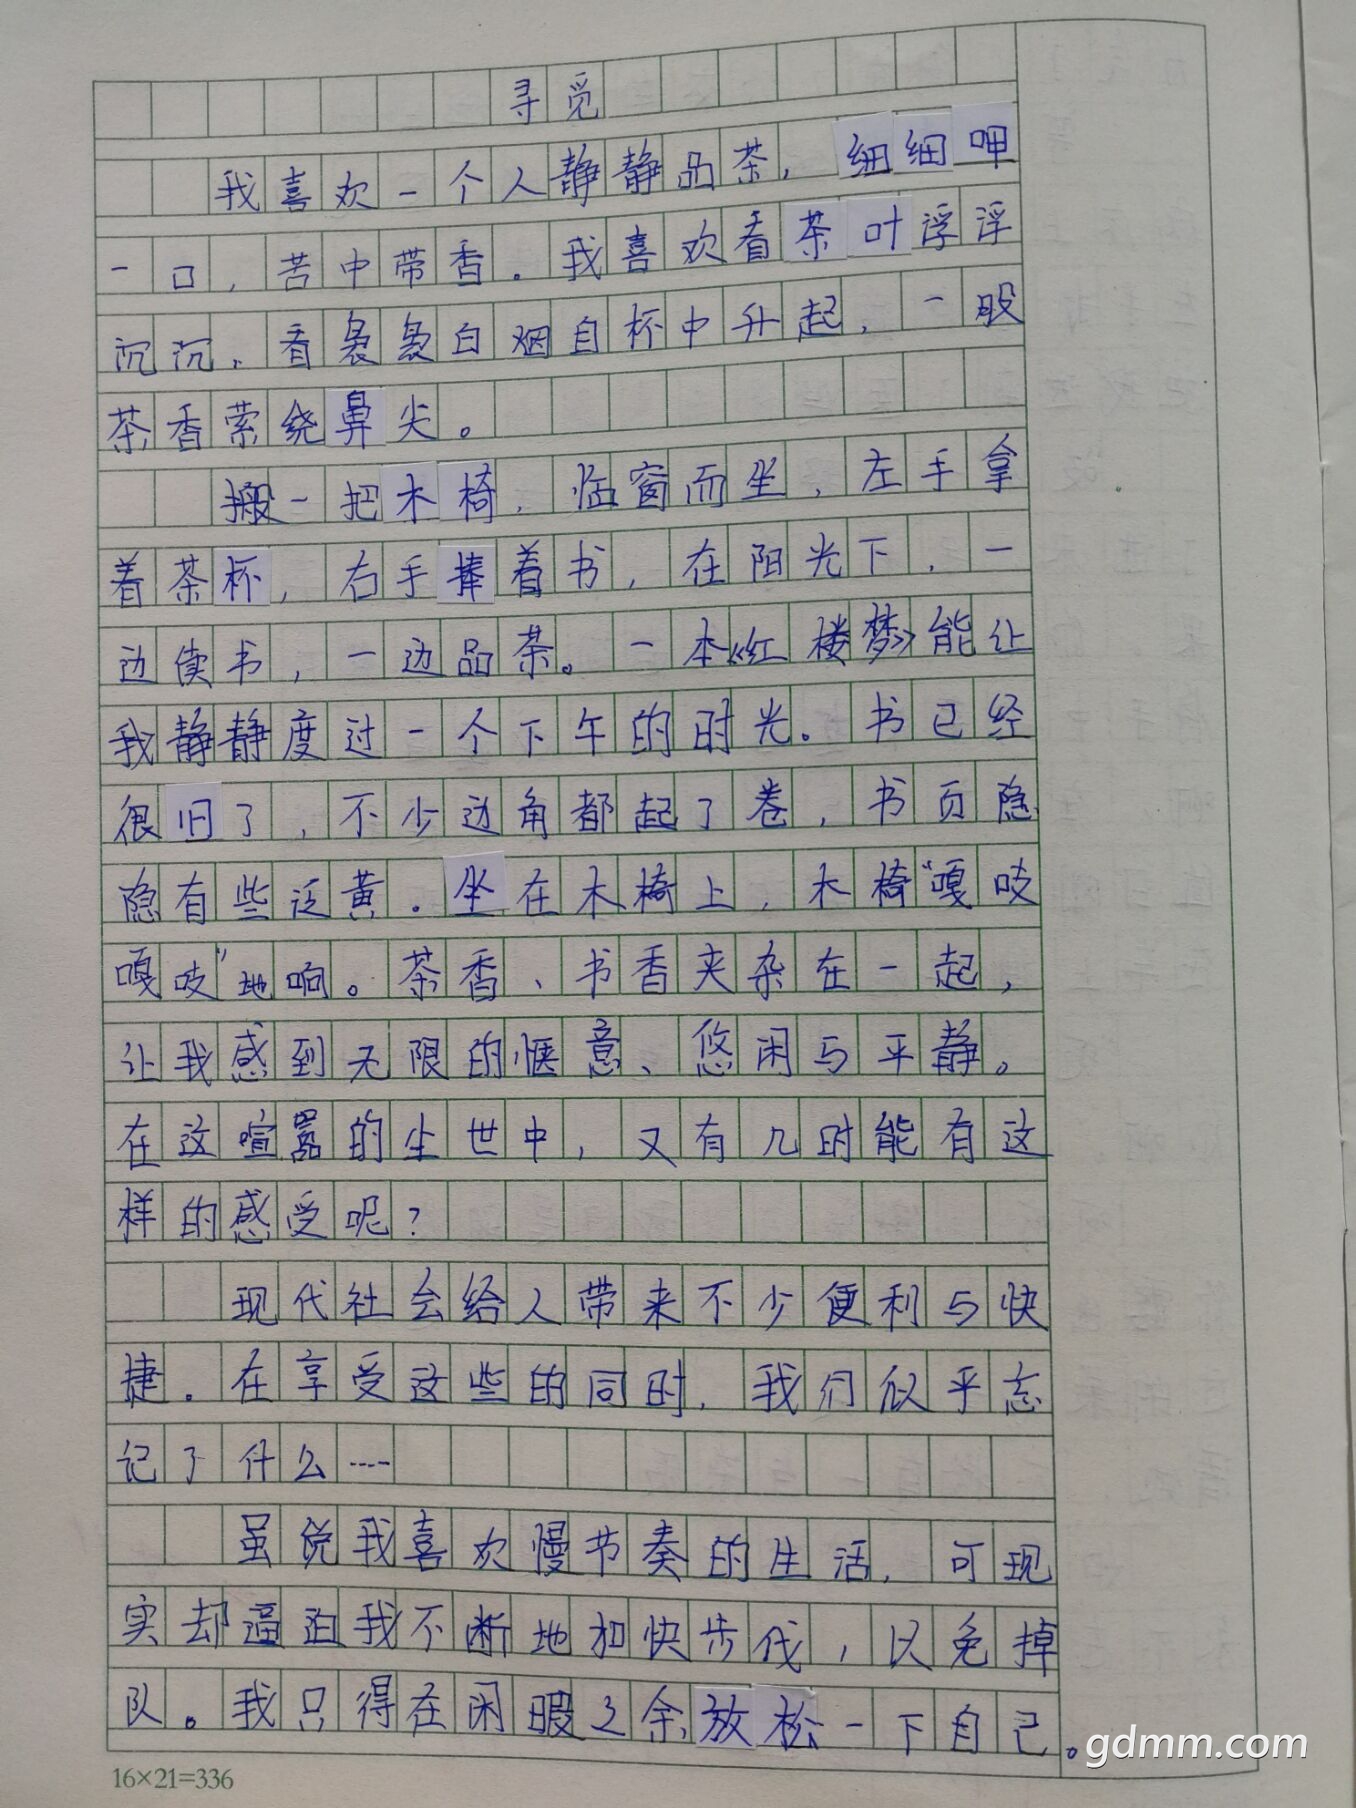 寻觅
我喜欢一个人静静品茶，细细呷
一口，苦中带香。我喜欢看茶叶浮浮
沉沉，看袅袅白烟自杯中升起，一股
茶香萦绕鼻尖。
搬一把木椅，临窗而坐，左手拿
着茶杯，右手捧着书，在阳光下，一
边读书，一边品茶。一本《红楼梦》能让
我静静度过一个下午的时光。书已经
很旧了，不少边角都起了卷，书页隐
隐有些泛黄。坐在木椅上，木椅“嘎吱
嘎吱”地响。茶香、书香夹杂在一起，
让我感到无限的惬意、悠闲与平静。
在这喧嚣的尘世中，又有几时能有这
样的感受呢？
现代社会给人带来不少便利与快
捷。在享受这些的同时，我们似乎忘
记了什么……
虽说我喜欢慢节奏的生活，可现
实却逼迫我不断地加快步伐，以免掉
队。我只得在闲暇之余放松一下自己。
16×21=336
gdmm.com